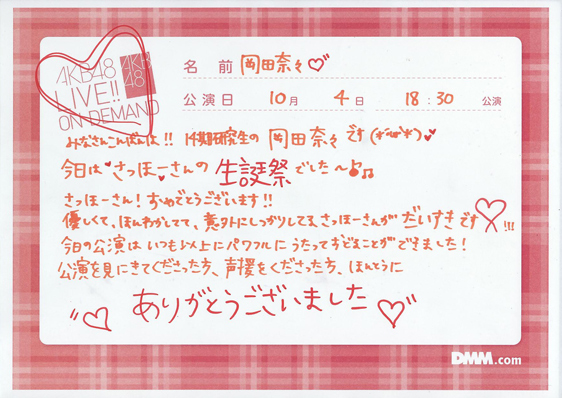 AKB48
LIVE!!
ON DEMAND
AKB
48
名前 岡田奈々♡
公演日 10月 4日 18:30 公演
みなさんこんばんは!! 14期研究生の 岡田奈々です
今日は♥さっほーさんの 生誕祭でした〜♪♫
さっほーさん! おめでとうございます!!
優しくて、ほんわかしてて、意外にしっかりしてる、さっほーさんが だいすきです♡!!!
今日の公演は いつも以上に パワフルに うたっておどることができました!
公演を見にきてくださった方、声援をくださった方、ほんとうに
"♡ ありがとうございました ♡"
DMM.com